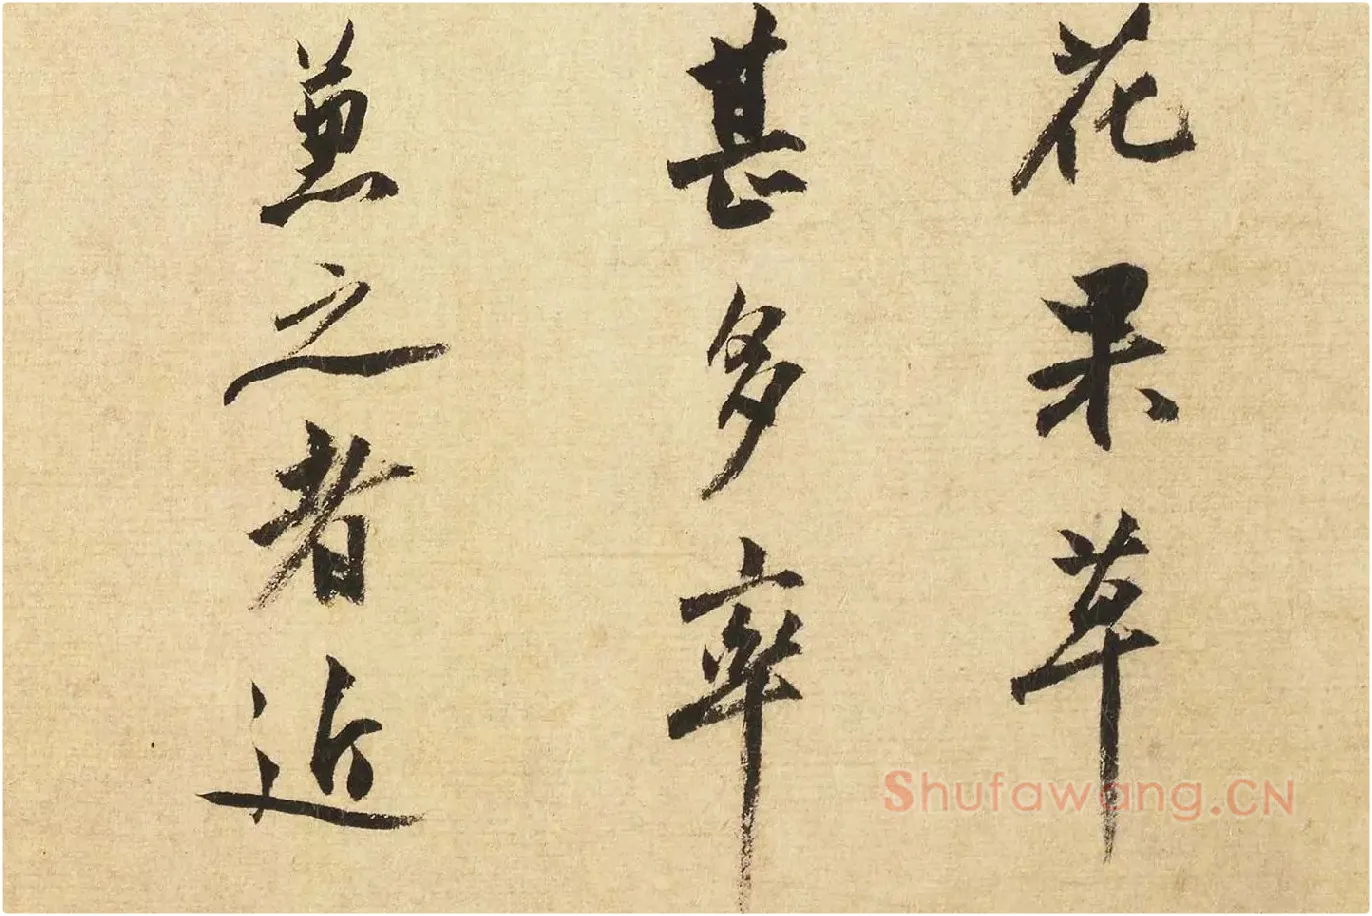 花果草
甚多率
兼之者近
Shufawang.CN